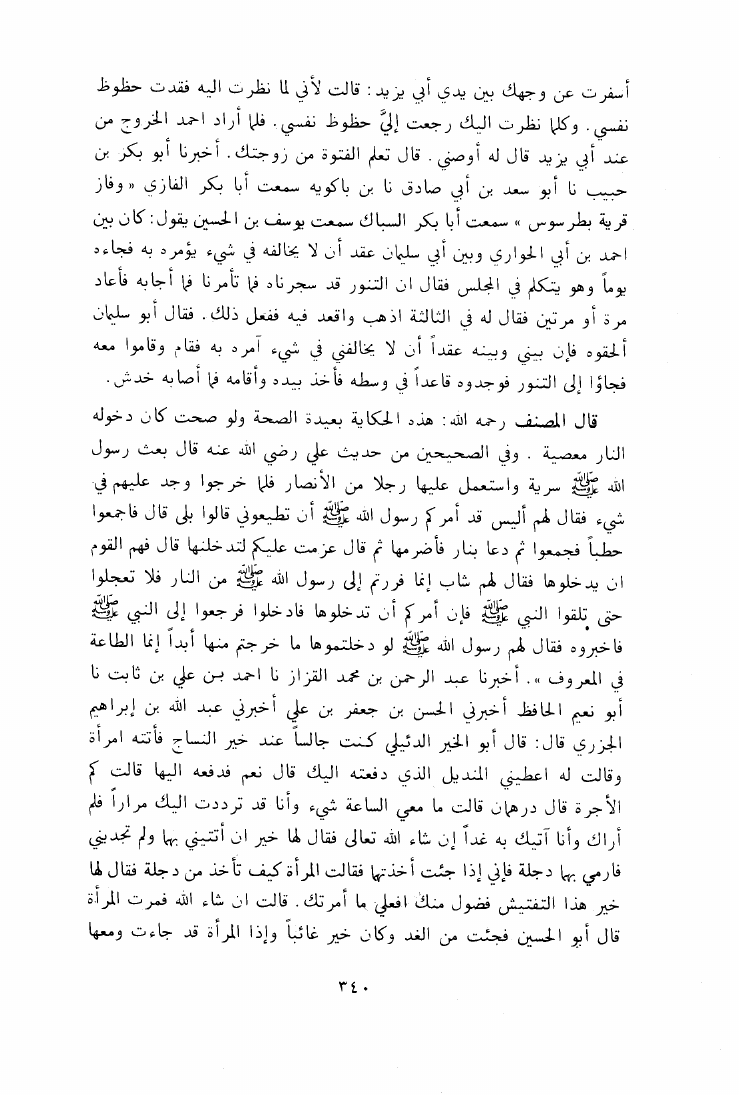 أسفرت عن وجهك بين يدي أبي يزيد: قالت لأني لما نظرت اليه فقدت حظوظ
نفسي. وكلما نظرت اليك رجعت إليَّ حظوظ نفسي. فلما أراد احمد الخروج من
عند أبي يزيد قال له أوصني. قال تعلم الفتوة من زوجتك. أخبرنا أبو بكر بن
حبيب نا أبو سعد بن أبي صادق نا بن باكويه سمعت أبا بكر الفازي « وفاز
قرية بطرسوس » سمعت أبا بكر السباك سمعت يوسف بن الحسين يقول: كان بين
احمد بن أبي الحواري وبين أبي سليمان عقد أن لا يخالفه في شيء يؤمره به فجاءه
يوماً وهو يتكلم في المجلس فقال ان التنور قد سجرناه فما تأمرنا فما أجابه فأعاد
مرة أو مرتين فقال له في الثالثة اذهب واقعد فيه ففعل ذلك. فقال أبو سليمان
ألحقوه فإن بيني وبينه عقداً أن لا يخالفني في شيء آمره به فقام وقاموا معه
فجاؤا إلى التنور فوجدوه قاعداً في وسطه فأخذ بيده وأقامه فما أصابه خدش.
قال المصنف رحمه الله: هذه الحكاية بعيدة الصحة ولو صحت كان دخوله
النار معصية . وفي الصحيحين من حديث علي رضي الله عنه قال بعث رسول
الله ﷺ سرية واستعمل عليها رجلا من الأنصار فلما خرجوا وجد عليهم في
شيء فقال لهم أليس قد أمركم رسول الله ﷺ أن تطيعوني قالوا بلى قال فاجمعوا
حطباً فجمعوا ثم دعا بنار فأضرمها ثم قال عزمت عليكم لتدخلنها قال فهم القوم
ان يدخلوها فقال لهم شاب إنما فررتم إلى رسول الله ﷺ من النار فلا تعجلوا
حتى تلقوا النبي ﷺ فإن أمركم أن تدخلوها فادخلوا فرجعوا إلى النبي ﷺ
فاخبروه فقال لهم رسول الله ﷺ لو دخلتموها ما خرجتم منها أبداً إنما الطاعة
في المعروف ». أخبرنا عبد الرحمن بن محمد القزاز نا احمد بن علي بن ثابت نا
أبو نعيم الحافظ أخبرني الحسن بن جعفر بن علي أخبرني عبد الله بن إبراهيم
الجزري قال: قال أبو الخير الدئيلي كنت جالساً عند خير النساج فأتته امرأة
وقالت له اعطيني المنديل الذي دفعته اليك قال نعم فدفعه اليها قالت كم
الأجرة قال درهمان قالت ما معي الساعة شيء وأنا قد ترددت اليك مراراً فلم
أراك وأنا آتيك به غداً إن شاء الله تعالى فقال لها خير ان أتتيني بها ولم تجديني
فارمي بها دجلة فإني إذا جئت أخذتها فقالت المرأة كيف تأخذ من دجلة فقال لها
خير هذا التفتيش فضول منك افعلي ما أمرتك. قالت ان شاء الله فمرت المرأة
قال أبو الحسين فجئت من الغد وكان خير غائباً وإذا المرأة قد جاءت ومعها
٣٤٠